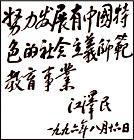 努力发展有中國特
色的社会主義师範
教育事業
江澤民
一九九六年八月六日